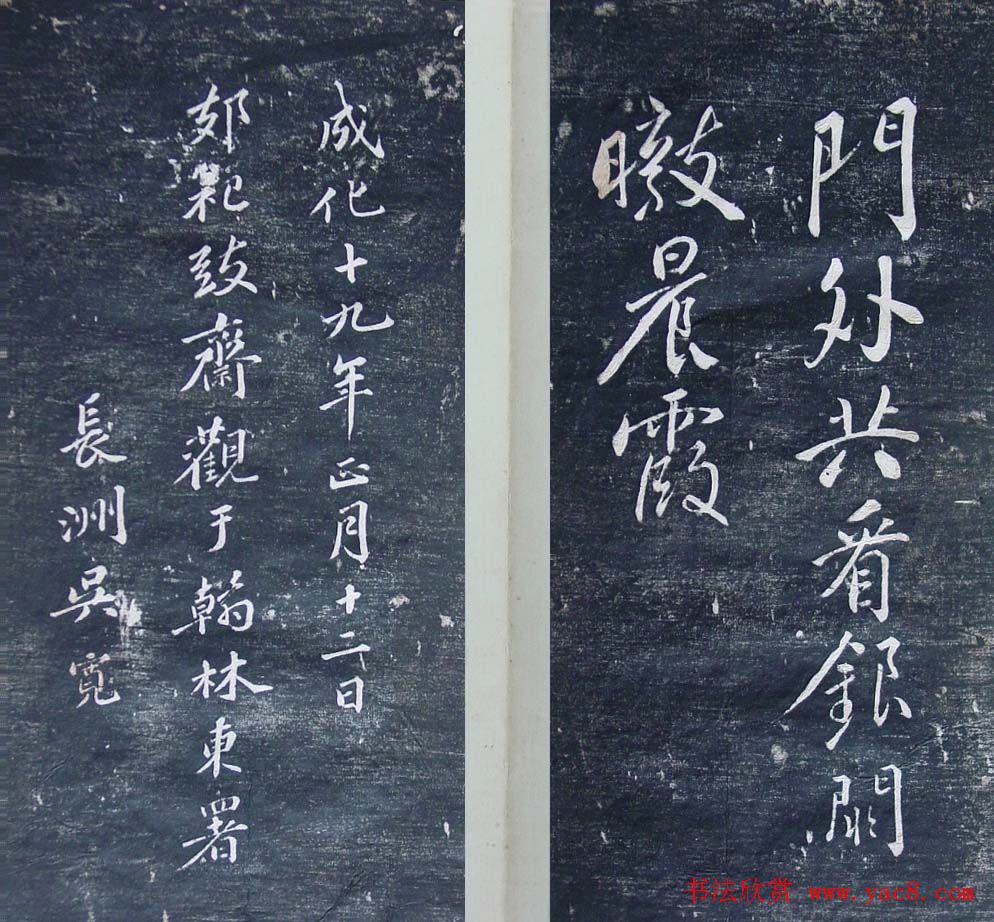 門外共看銀闕
暾晨霞
成化十九年正月十二日
郊祀致齋觀于翰林東署
長洲吳寬
书法欣赏 www.yac8.com